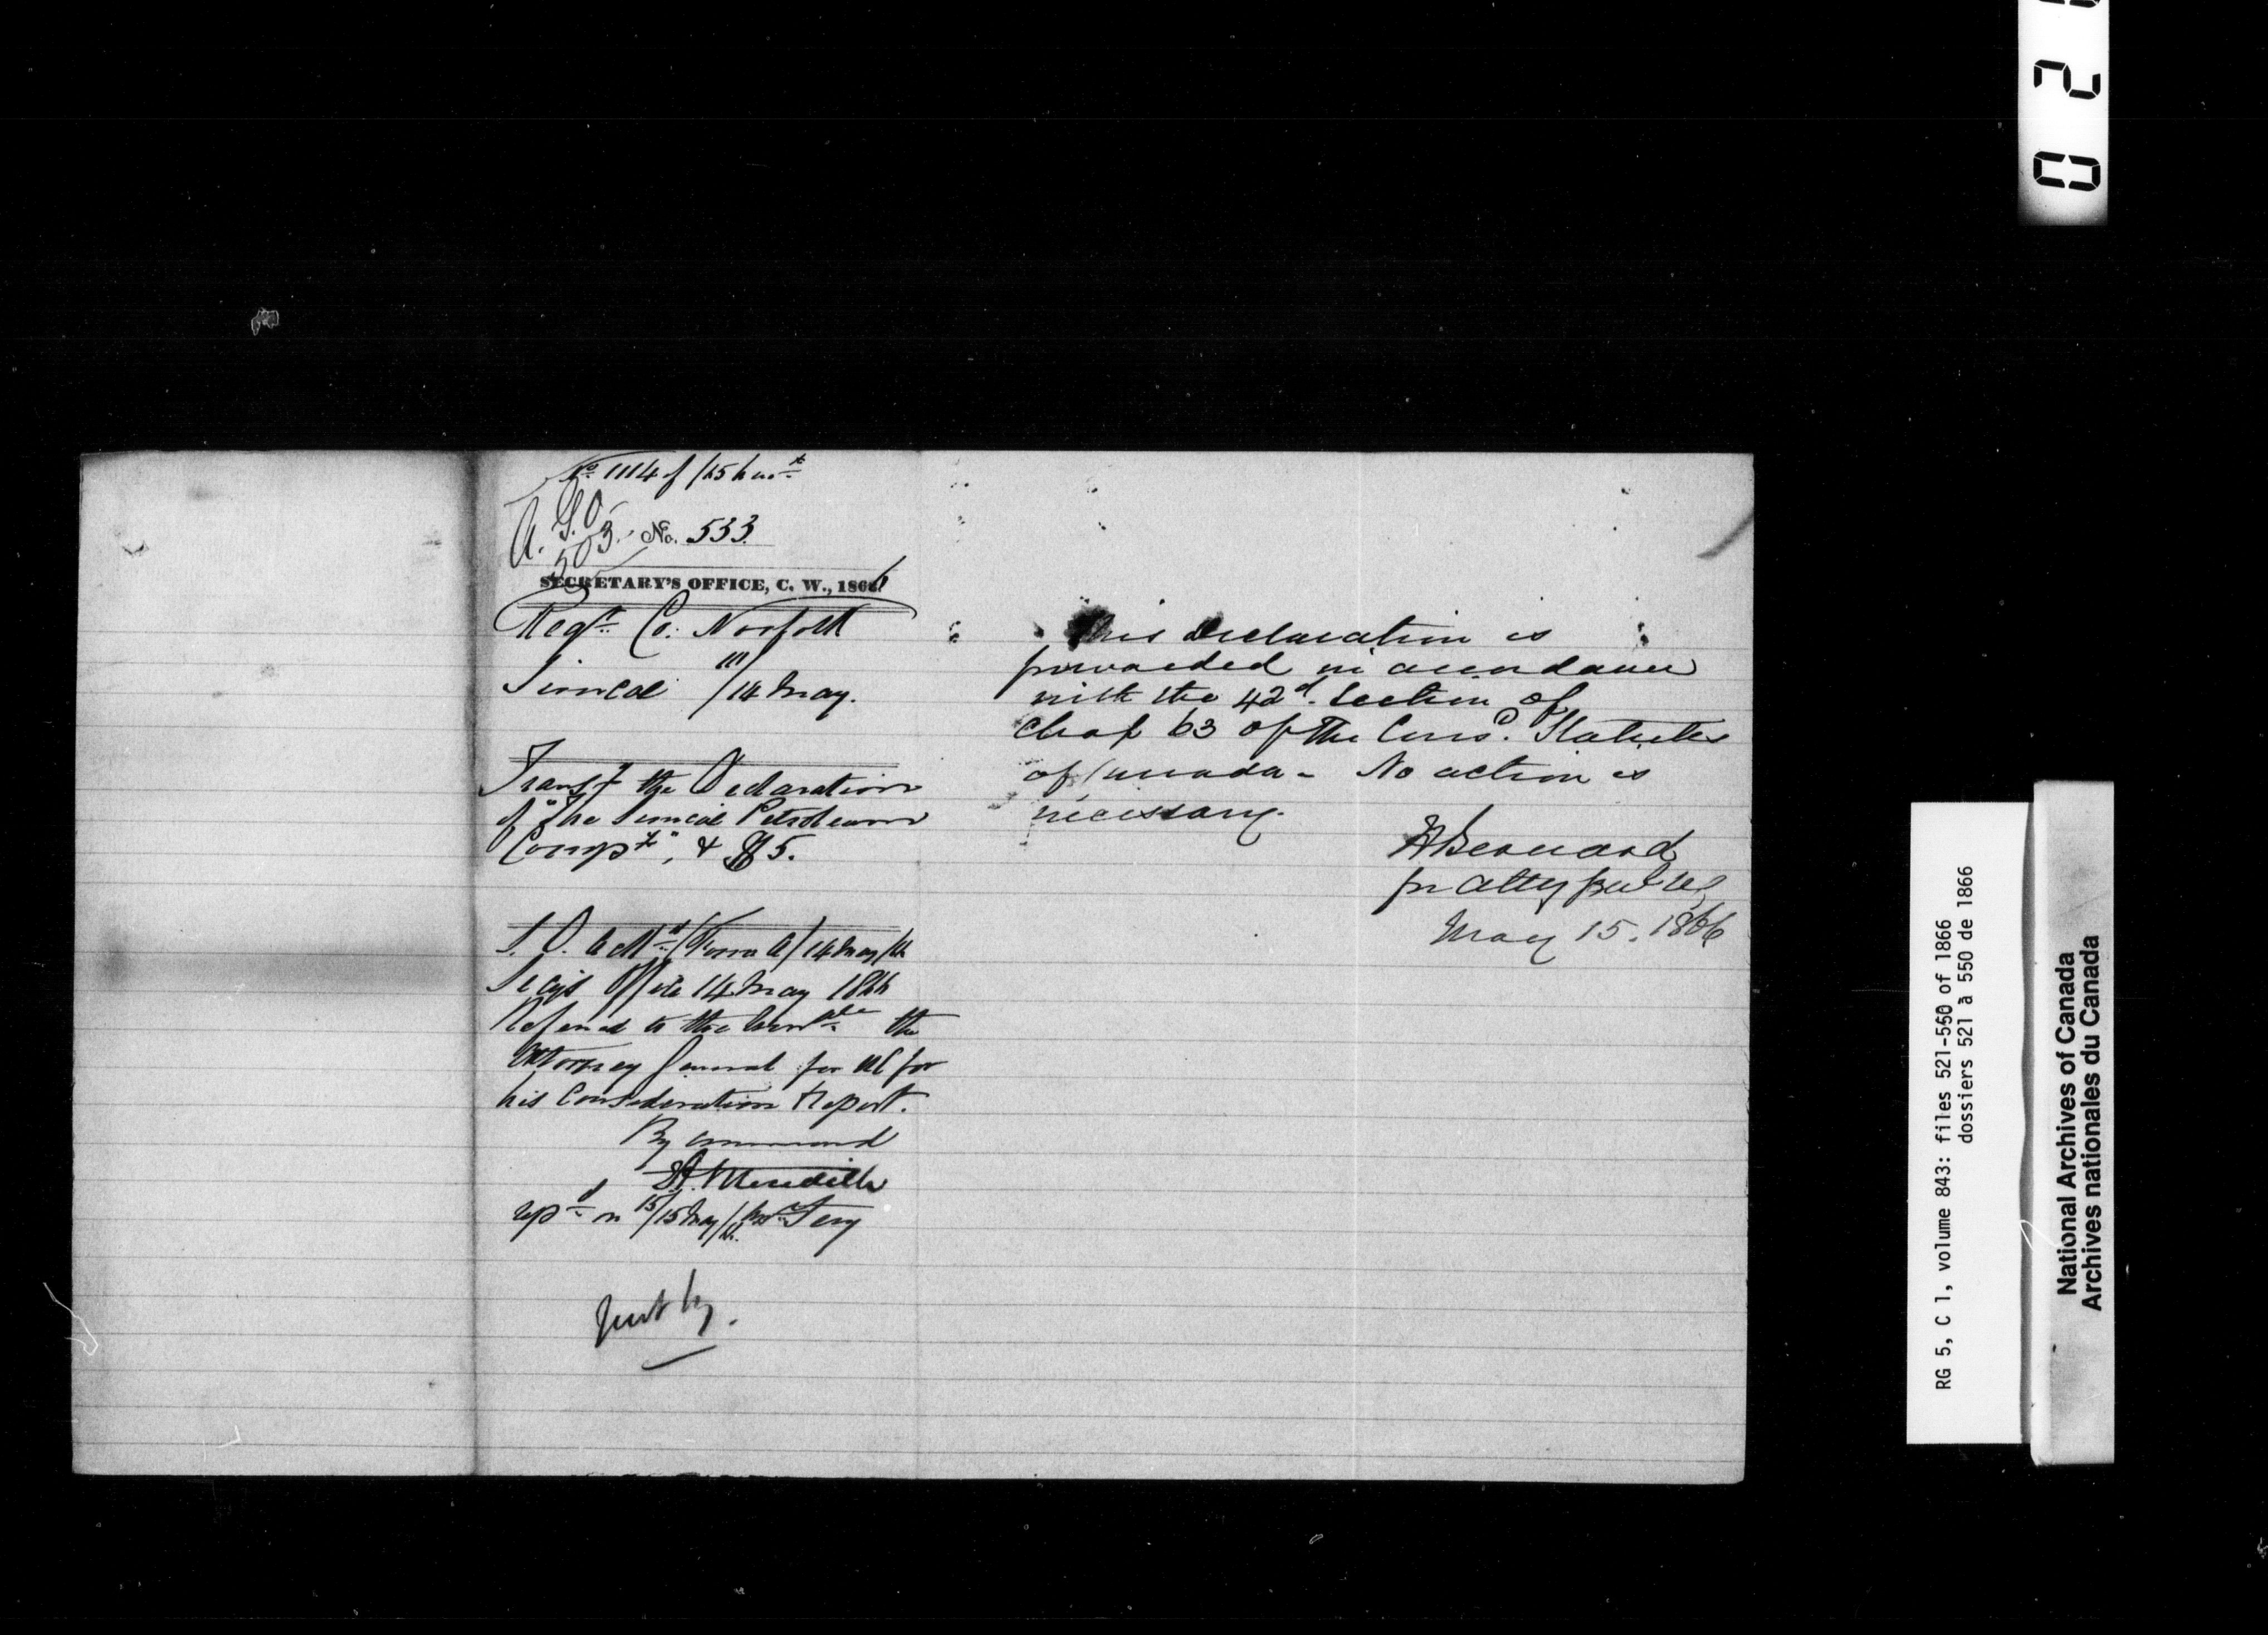 No 1114 of
A. G. O.
503. No. 533
SECRETARY'S OFFICE, C. W., 1866
Regr. Co: Norfolk
Simcoe 11/14 May.
Transg the Declaration
of "The Simcoe Petroleum
Compy", & $5.
14 May
Secy's Office 14 May 1866
Referred to the Honble the
Attorney General for UC for
his Consideration & Report.
By command
E A Meredith
on 15/15 May
Put by.
This declaration is
forwarded in accordance
with the 42d. Section of
Chap 63 of The Consd. Statutes
of Canada - No action is
necessary.
H Bernard
for Atty Genl UC
May 15. 1866
0 2
RG 5, C 1, volume 843: files 521-550 of 1866
dossiers 521 à 550 de 1866
National Archives of Canada
Archives nationales du Canada